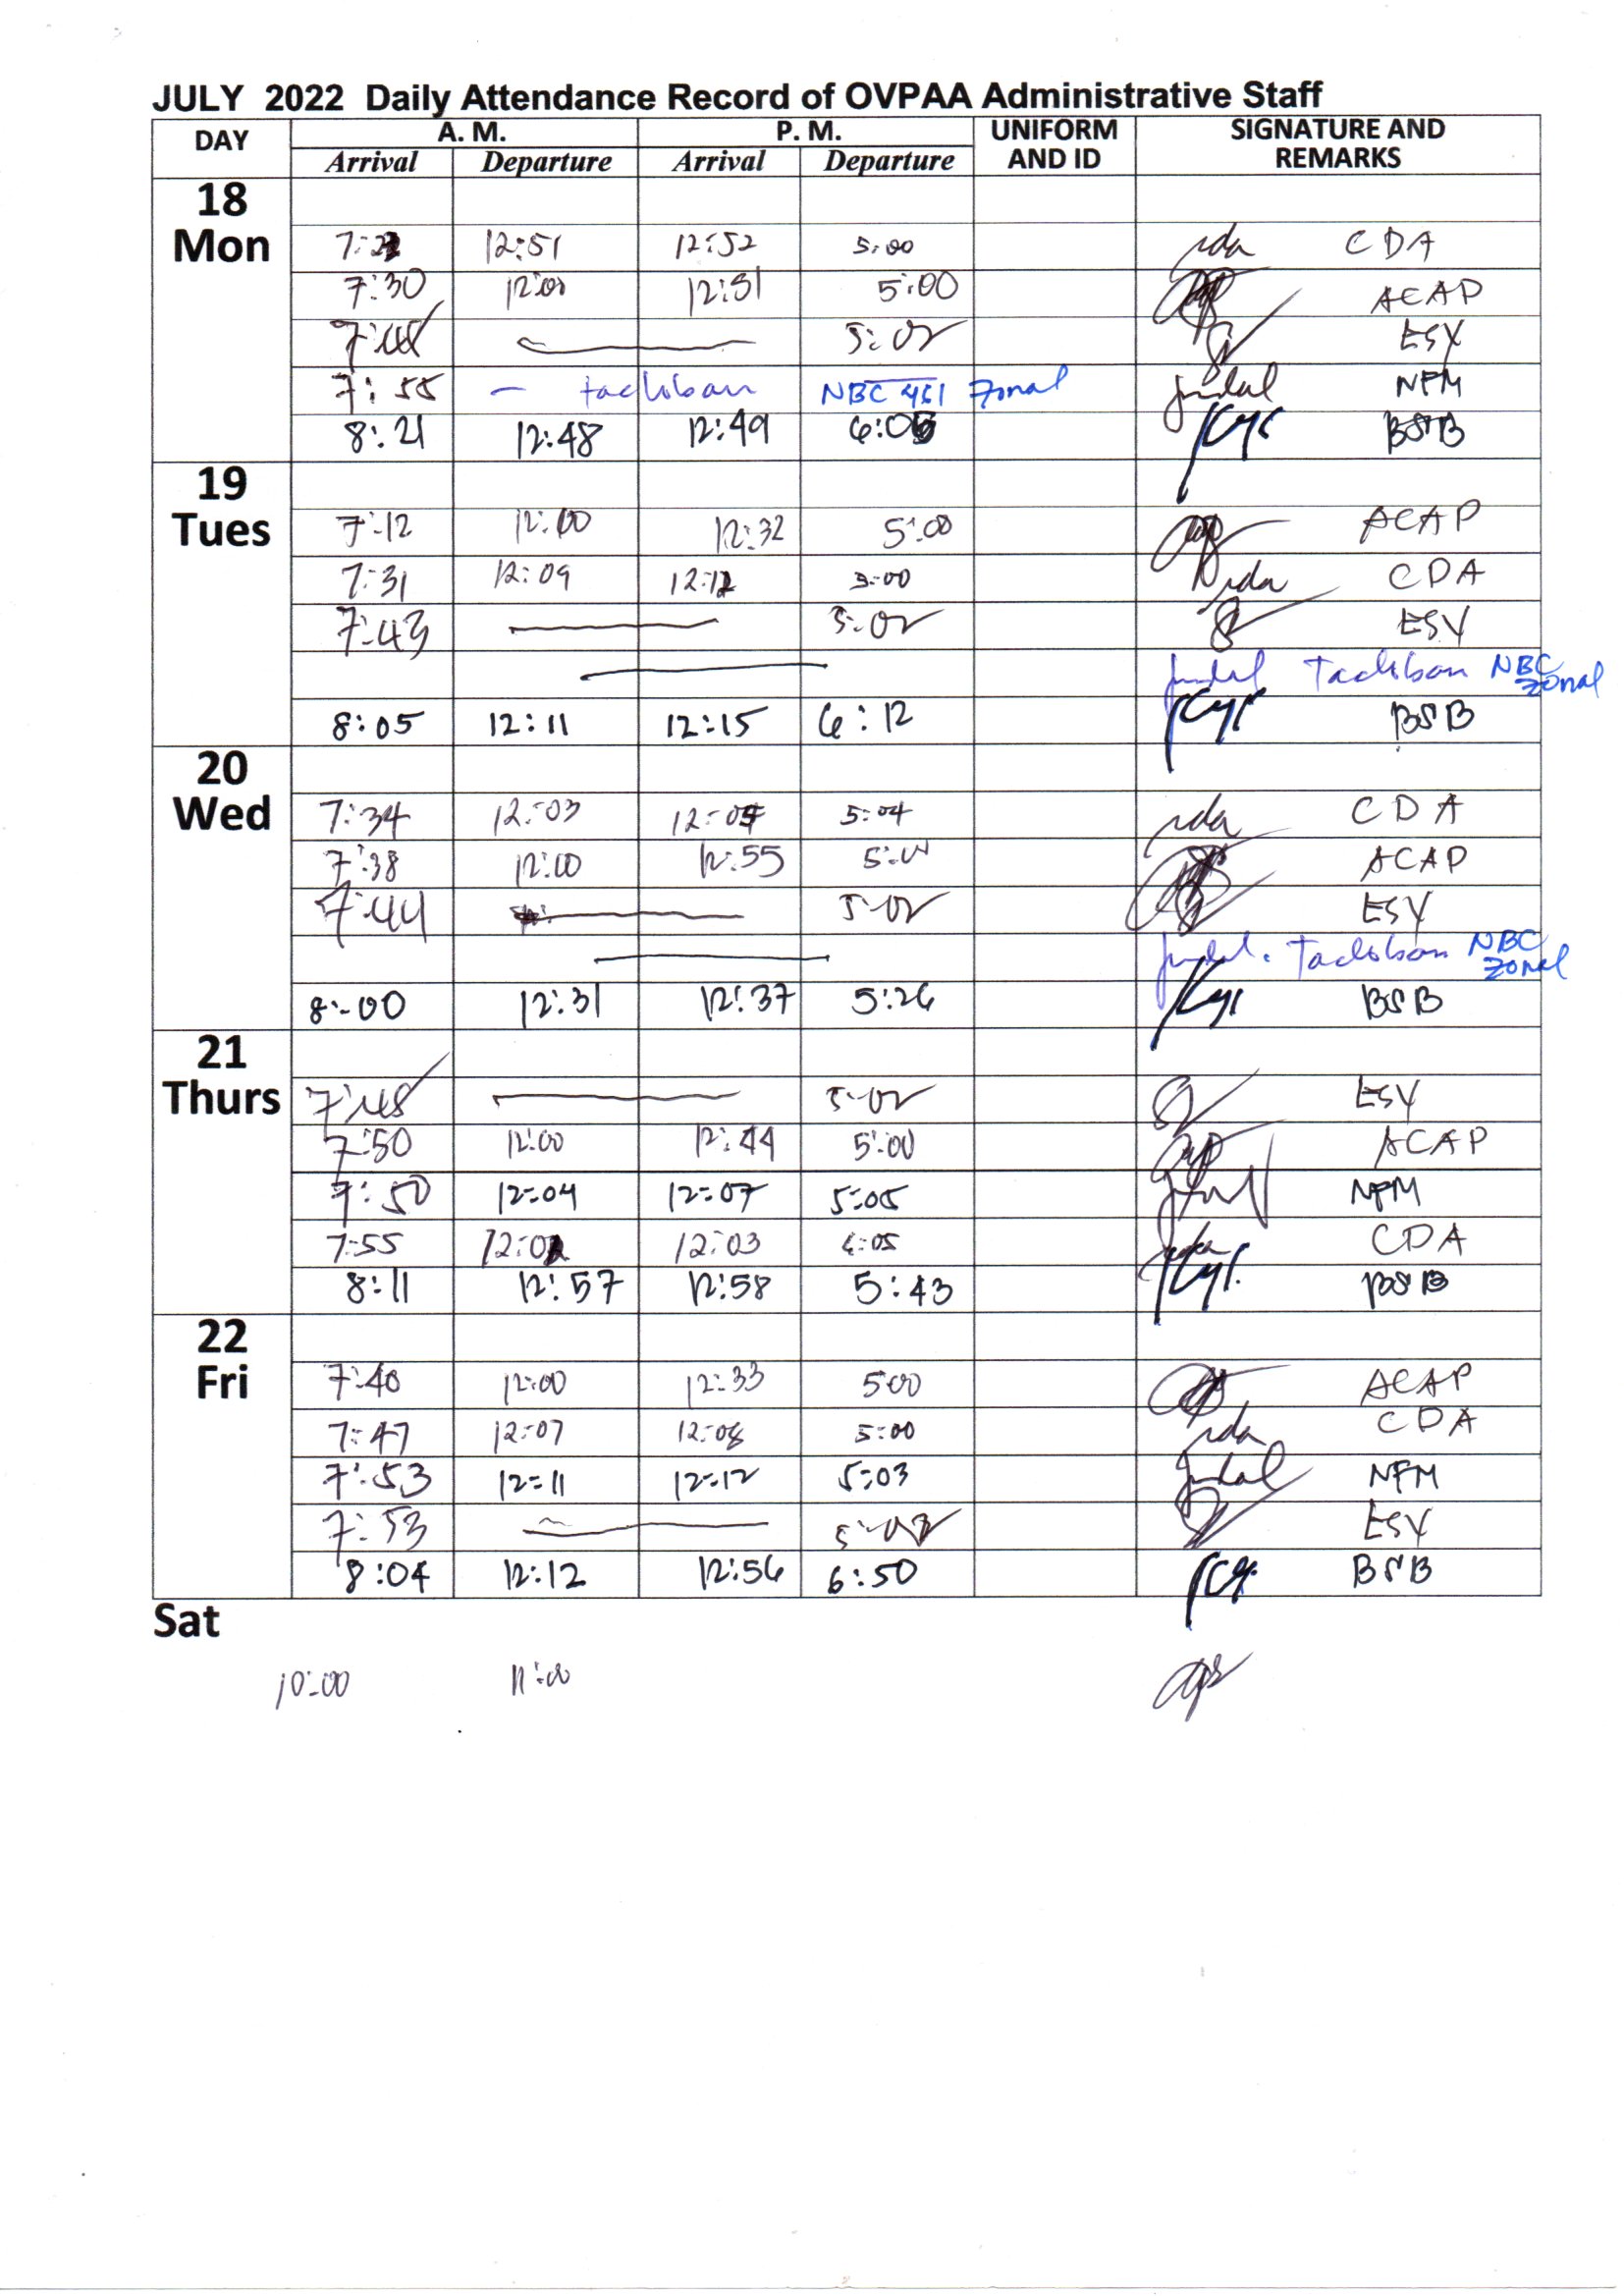 JULY 2022 Daily Attendance Record of OVPAA Administrative Staff
DAY A. M. P. M. UNIFORM AND ID SIGNATURE AND REMARKS
Arrival Departure Arrival Departure
18 Mon
12:51 12:52 5:00 CDA
7:30 12:00 12:51 5:00 ACAP
7:48 5:02 ESY
7:55 – Tacloban NBC 461 Zonal NFM
8:21 12:48 12:49 BSB
19 Tues
7:12 12:00 12:32 5:00 ACAP
7:31 12:09 12:12 5:00 CDA
7:43 5:02 ESY
Tacloban NBC Zonal
8:05 12:11 12:15 6:12 BSB
20 Wed
7:34 12:03 5:04 CDA
7:38 12:00 12:55 5:00 ACAP
7:44 5:02 ESY
Tacloban NBC Zonal
8:00 12:31 12:37 5:26 BSB
21 Thurs
7:48 5:02 ESY
7:50 12:00 12:44 5:00 ACAP
7:50 12:04 12:07 5:05 NFM
7:55 12:03 CDA
8:11 12:57 12:58 5:43 BSB
22 Fri
7:40 12:00 12:33 5:00 ACAP
7:47 12:07 12:08 5:00 CDA
7:53 12:11 12:12 5:03 NFM
7:53 ESY
8:04 12:12 12:56 6:50 BSB
Sat
10:00 11:00